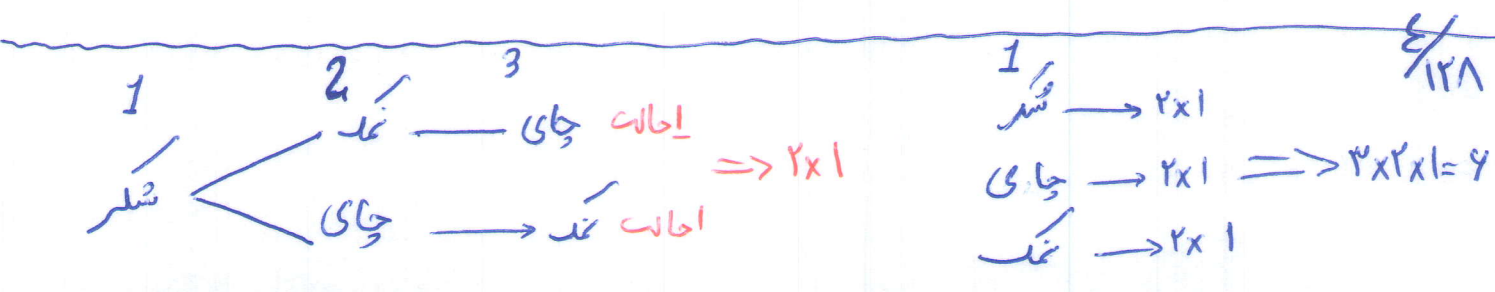 ۴/۱۲۸
1 2 3
شکر نمک چای ۱حالت
چای نمک ۱حالت
=> ۲×۱
1
شکر → ۲×۱
چای → ۲×۱ => ۳×۲×۱=۶
نمک → ۲×۱